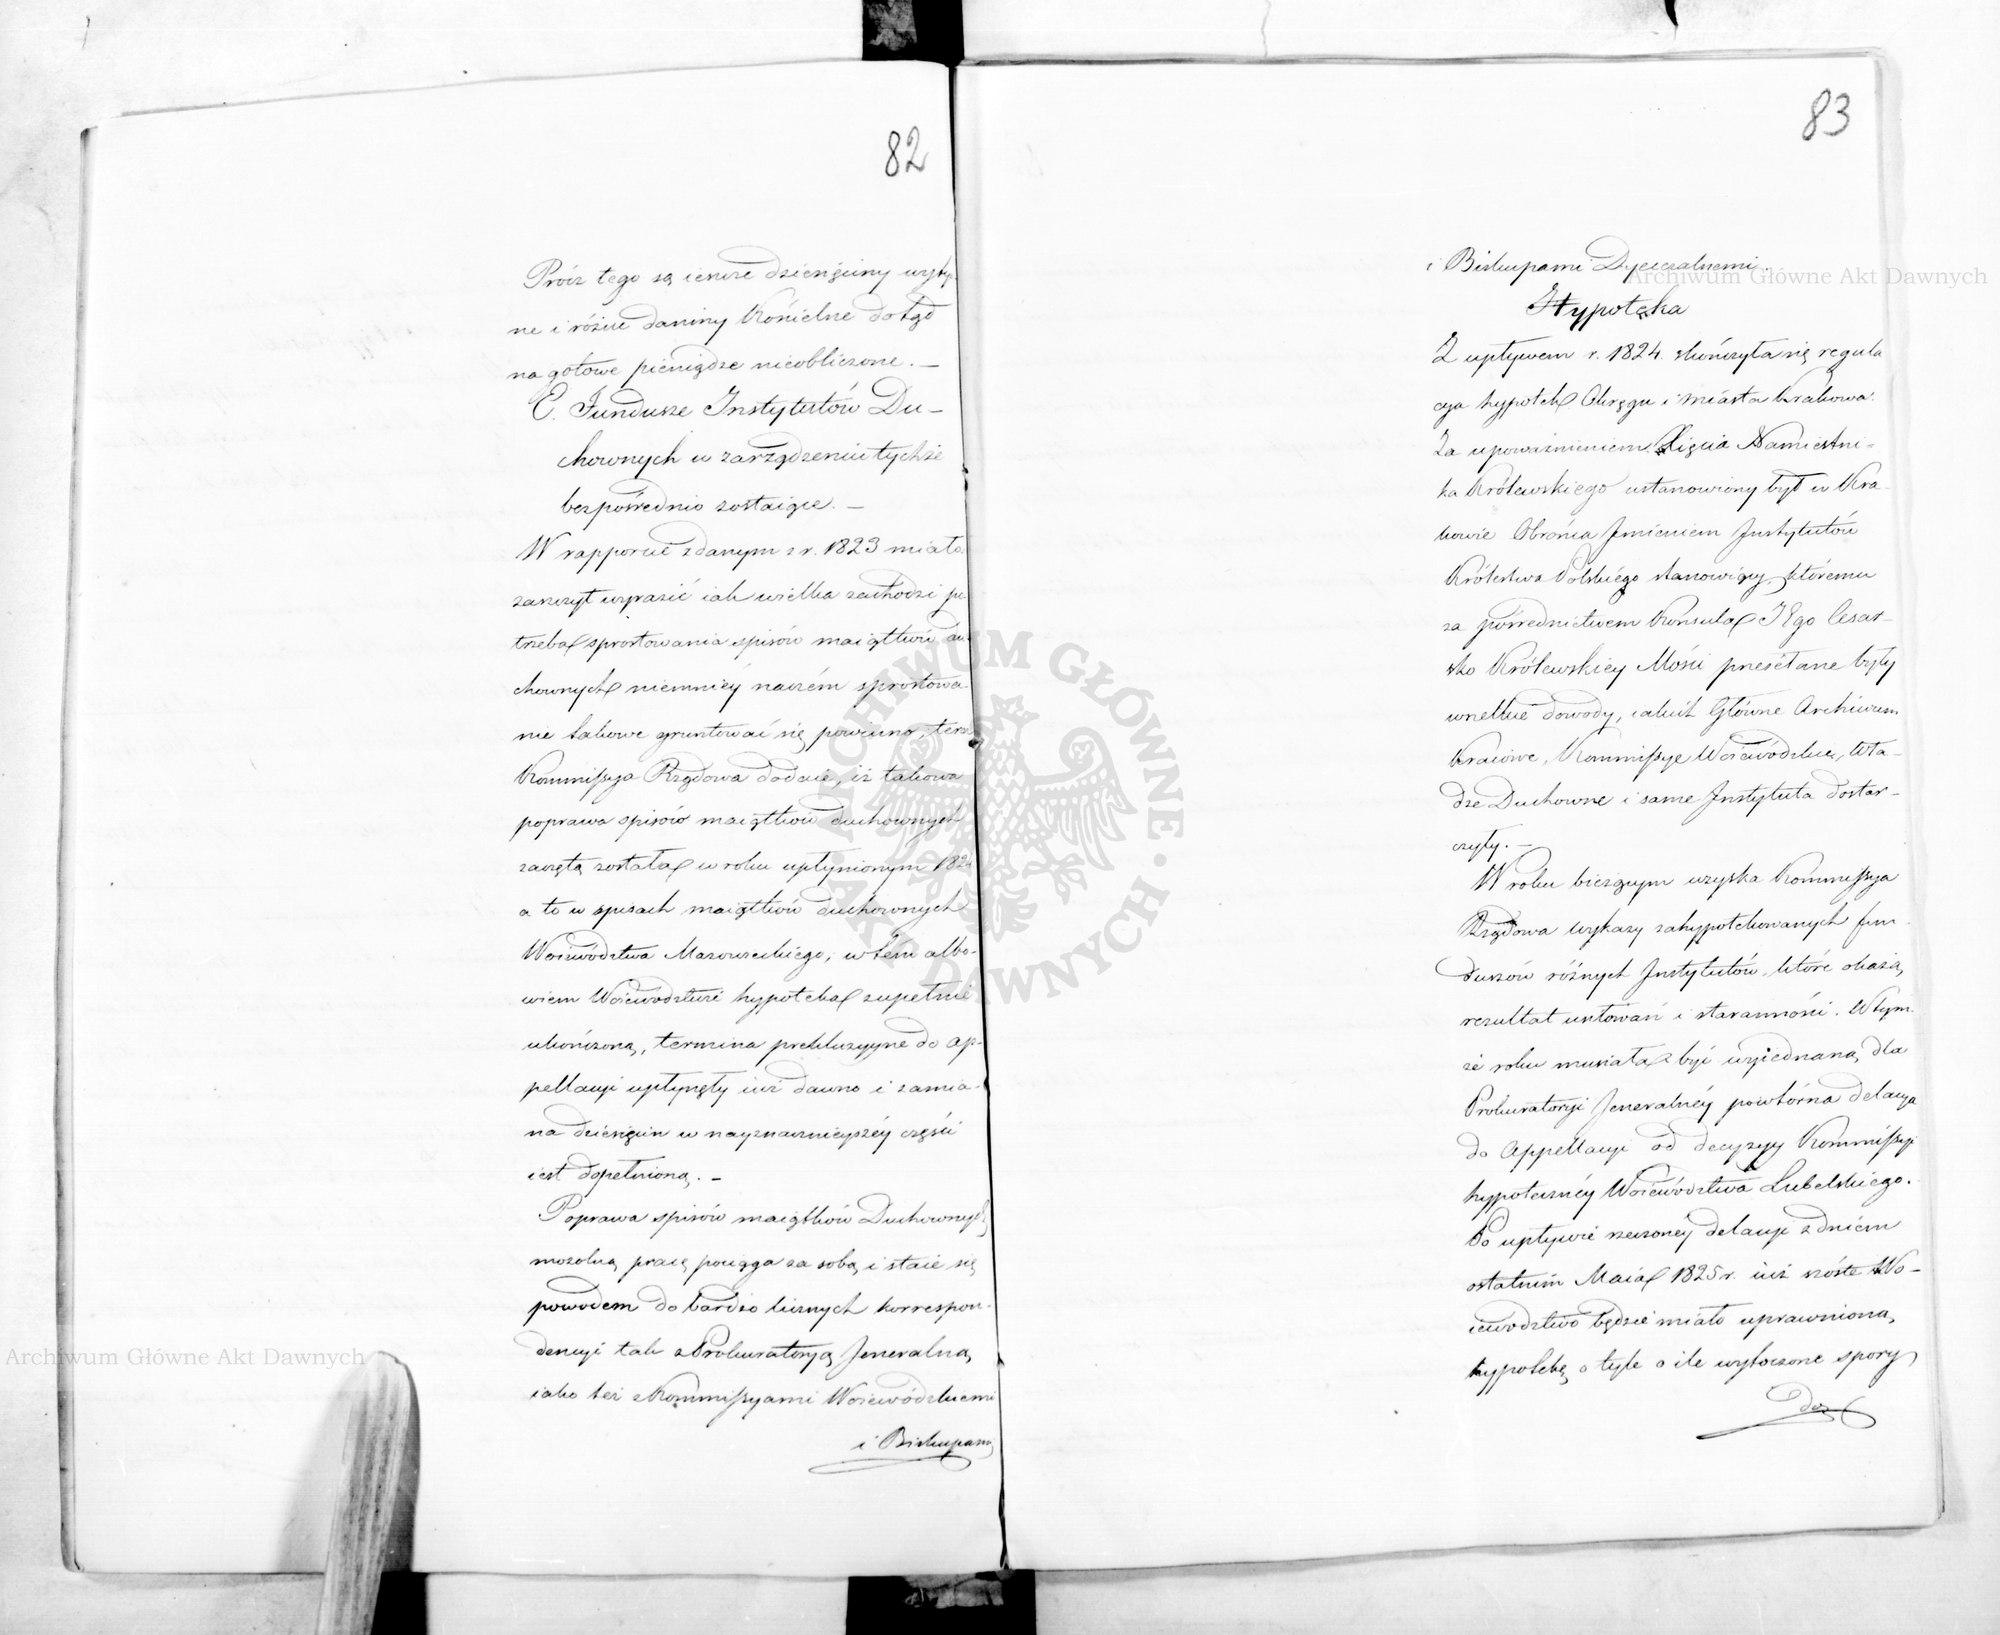 82
Prócz tego są ieszcze dziesięciny wyty-
ne i różne daniny Kościelne dotąd
na gotowe pieniądze nieobliczone. —
E. Fundusze Instytutów Du-
chownych w zarządzeniu tychże
bezpośrednio zostaiące. —
W rapporcie zdanym z r. 1823 miała
zaszczyt wyrazić iak wielka zachodzi po-
trzeba sprostowania spisów maiątków du-
chownych niemniéy na czém sprostowa-
nie takowe gruntować się powinno, teraz
Kommissya Rządowa dodaie, iż takowa
poprawa spisów maiątków duchownych
zaczętą została w roku upłynionym 1824
a to w spisach maiątków duchownych
Woiewództwa Mazowieckiego, w tém albo-
wiem Woiewództwie hypoteka zupełnie
ukończoną, termina prekluzyyne do ap-
pellacyi upłynęły iuż dawno i zamia-
na dziesięcin w nayznacznieyszéy części
iest dopełnioną. —
Poprawa spisów maiątków Duchownych
mozolną pracę pociąga za sobą i staie się
powodem do bardzo licznych korrespon-
dencyi tak z Prokuratoryą Jeneralną
iako też z Kommissyami Woiewódzkiemi
i Biskupami
83
i Biskupami Dyecezalnemi.
Hypoteka
Z upływem r. 1824. skończyła się regula
cya hypotek Okręgu i miasta Krakowa.
Za upoważnieniem Xięcia Namiestni-
ka Królewskiego ustanowiony był w Kra-
kowie Obrońca Jmieniem Jnstytutów
Królestwa Polskiego stanowiący, któremu
za pośrednictwem Konsula JEgo Cesar-
sko Królewskiey Mości przesłane były
wszelkie dowody, iakich Główne Archiwum
kraiowe, Kommissye Woiewódzkie, Wła-
dze Duchowne i same Jnstytuta dostar-
czyły. —
W roku bieżącym uzyska Kommissya
Rządowa wykazy zahypotekowanych fun-
duszów różnych Jnstytutów, które okażą
rezultat usiłowań i staranności. W tym-
że roku musiała być wyiednaną dla
Prokuratoryi Jeneralnéy powtórna delacya
do Appellacyi od decyzyy Kommissyi
hypotecznéy Woiewództwa Lubelskiego.
Po upływie rzeczonéy delacyi z dniem
ostatnim Maia 1825 r. iuż szóste Wo-
iewództwo będzie miało uprawnioną
hypotekę o tyle o ile wytoczone spory
Archiwum Główne Akt Dawnych
Archiwum Główne Akt Dawnych
ARCHIWUM GŁÓWNE AKT DAWNYCH